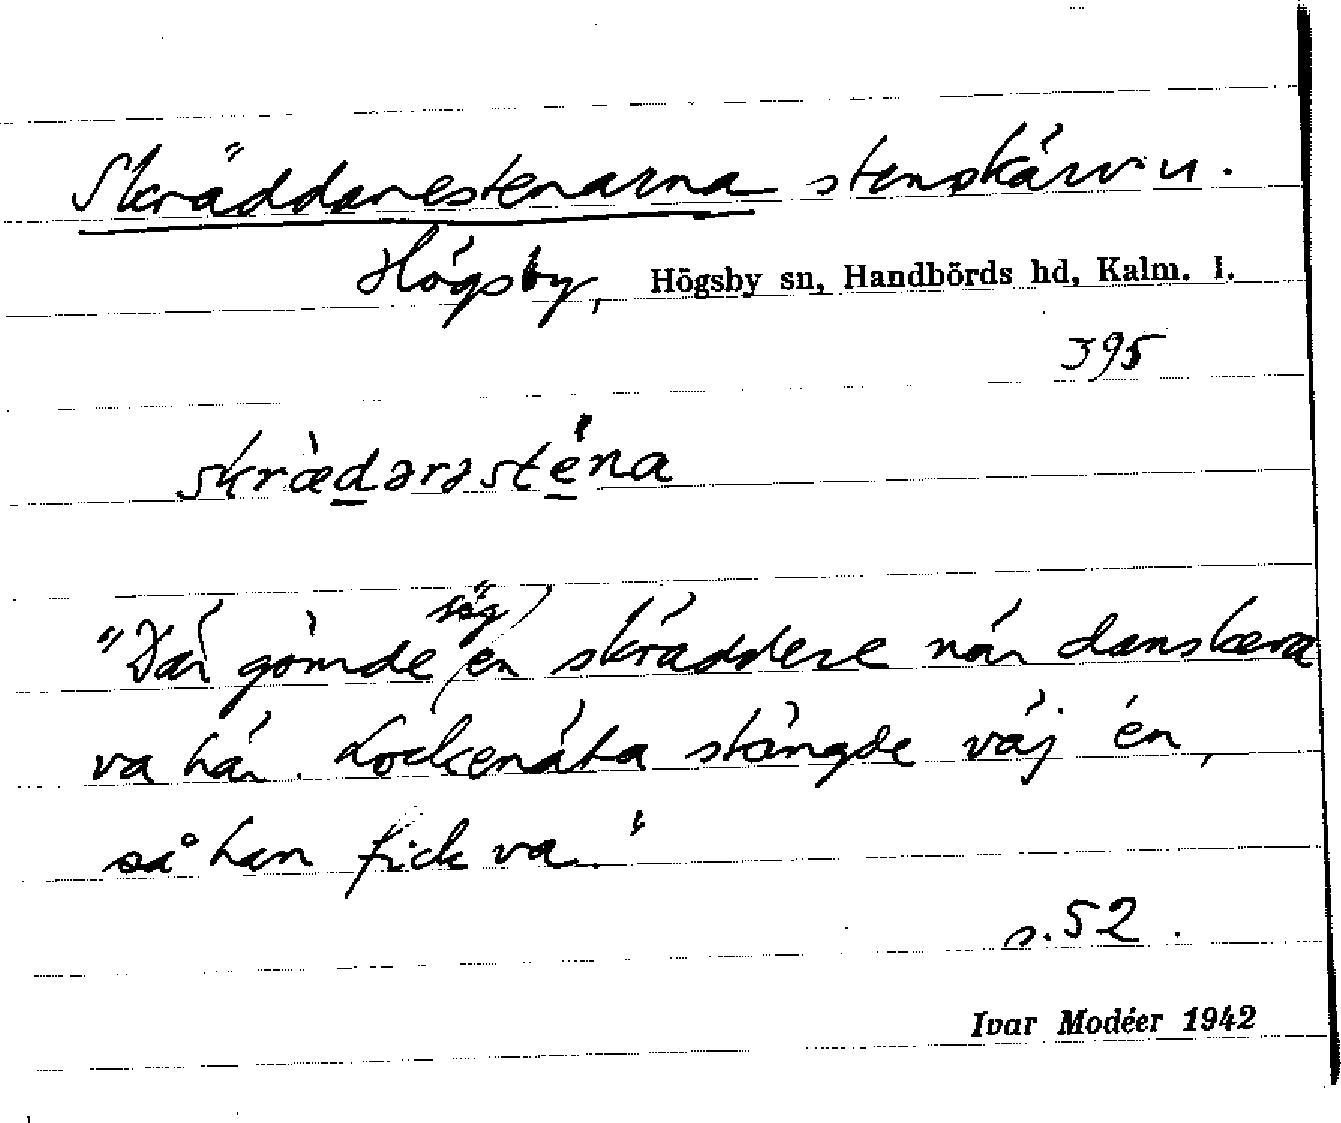 Skräddarestenarna stenskärv. u.
Högsby, Högsby sn, Handbörds hd, Kalm. l.
395
skræ̀dərəsté̱na
"Där gömde säg en skräddere när danskera
va här. Lockenäta stängde väj én,
så han fick va."
s. 52.
Ivar Modéer 1942